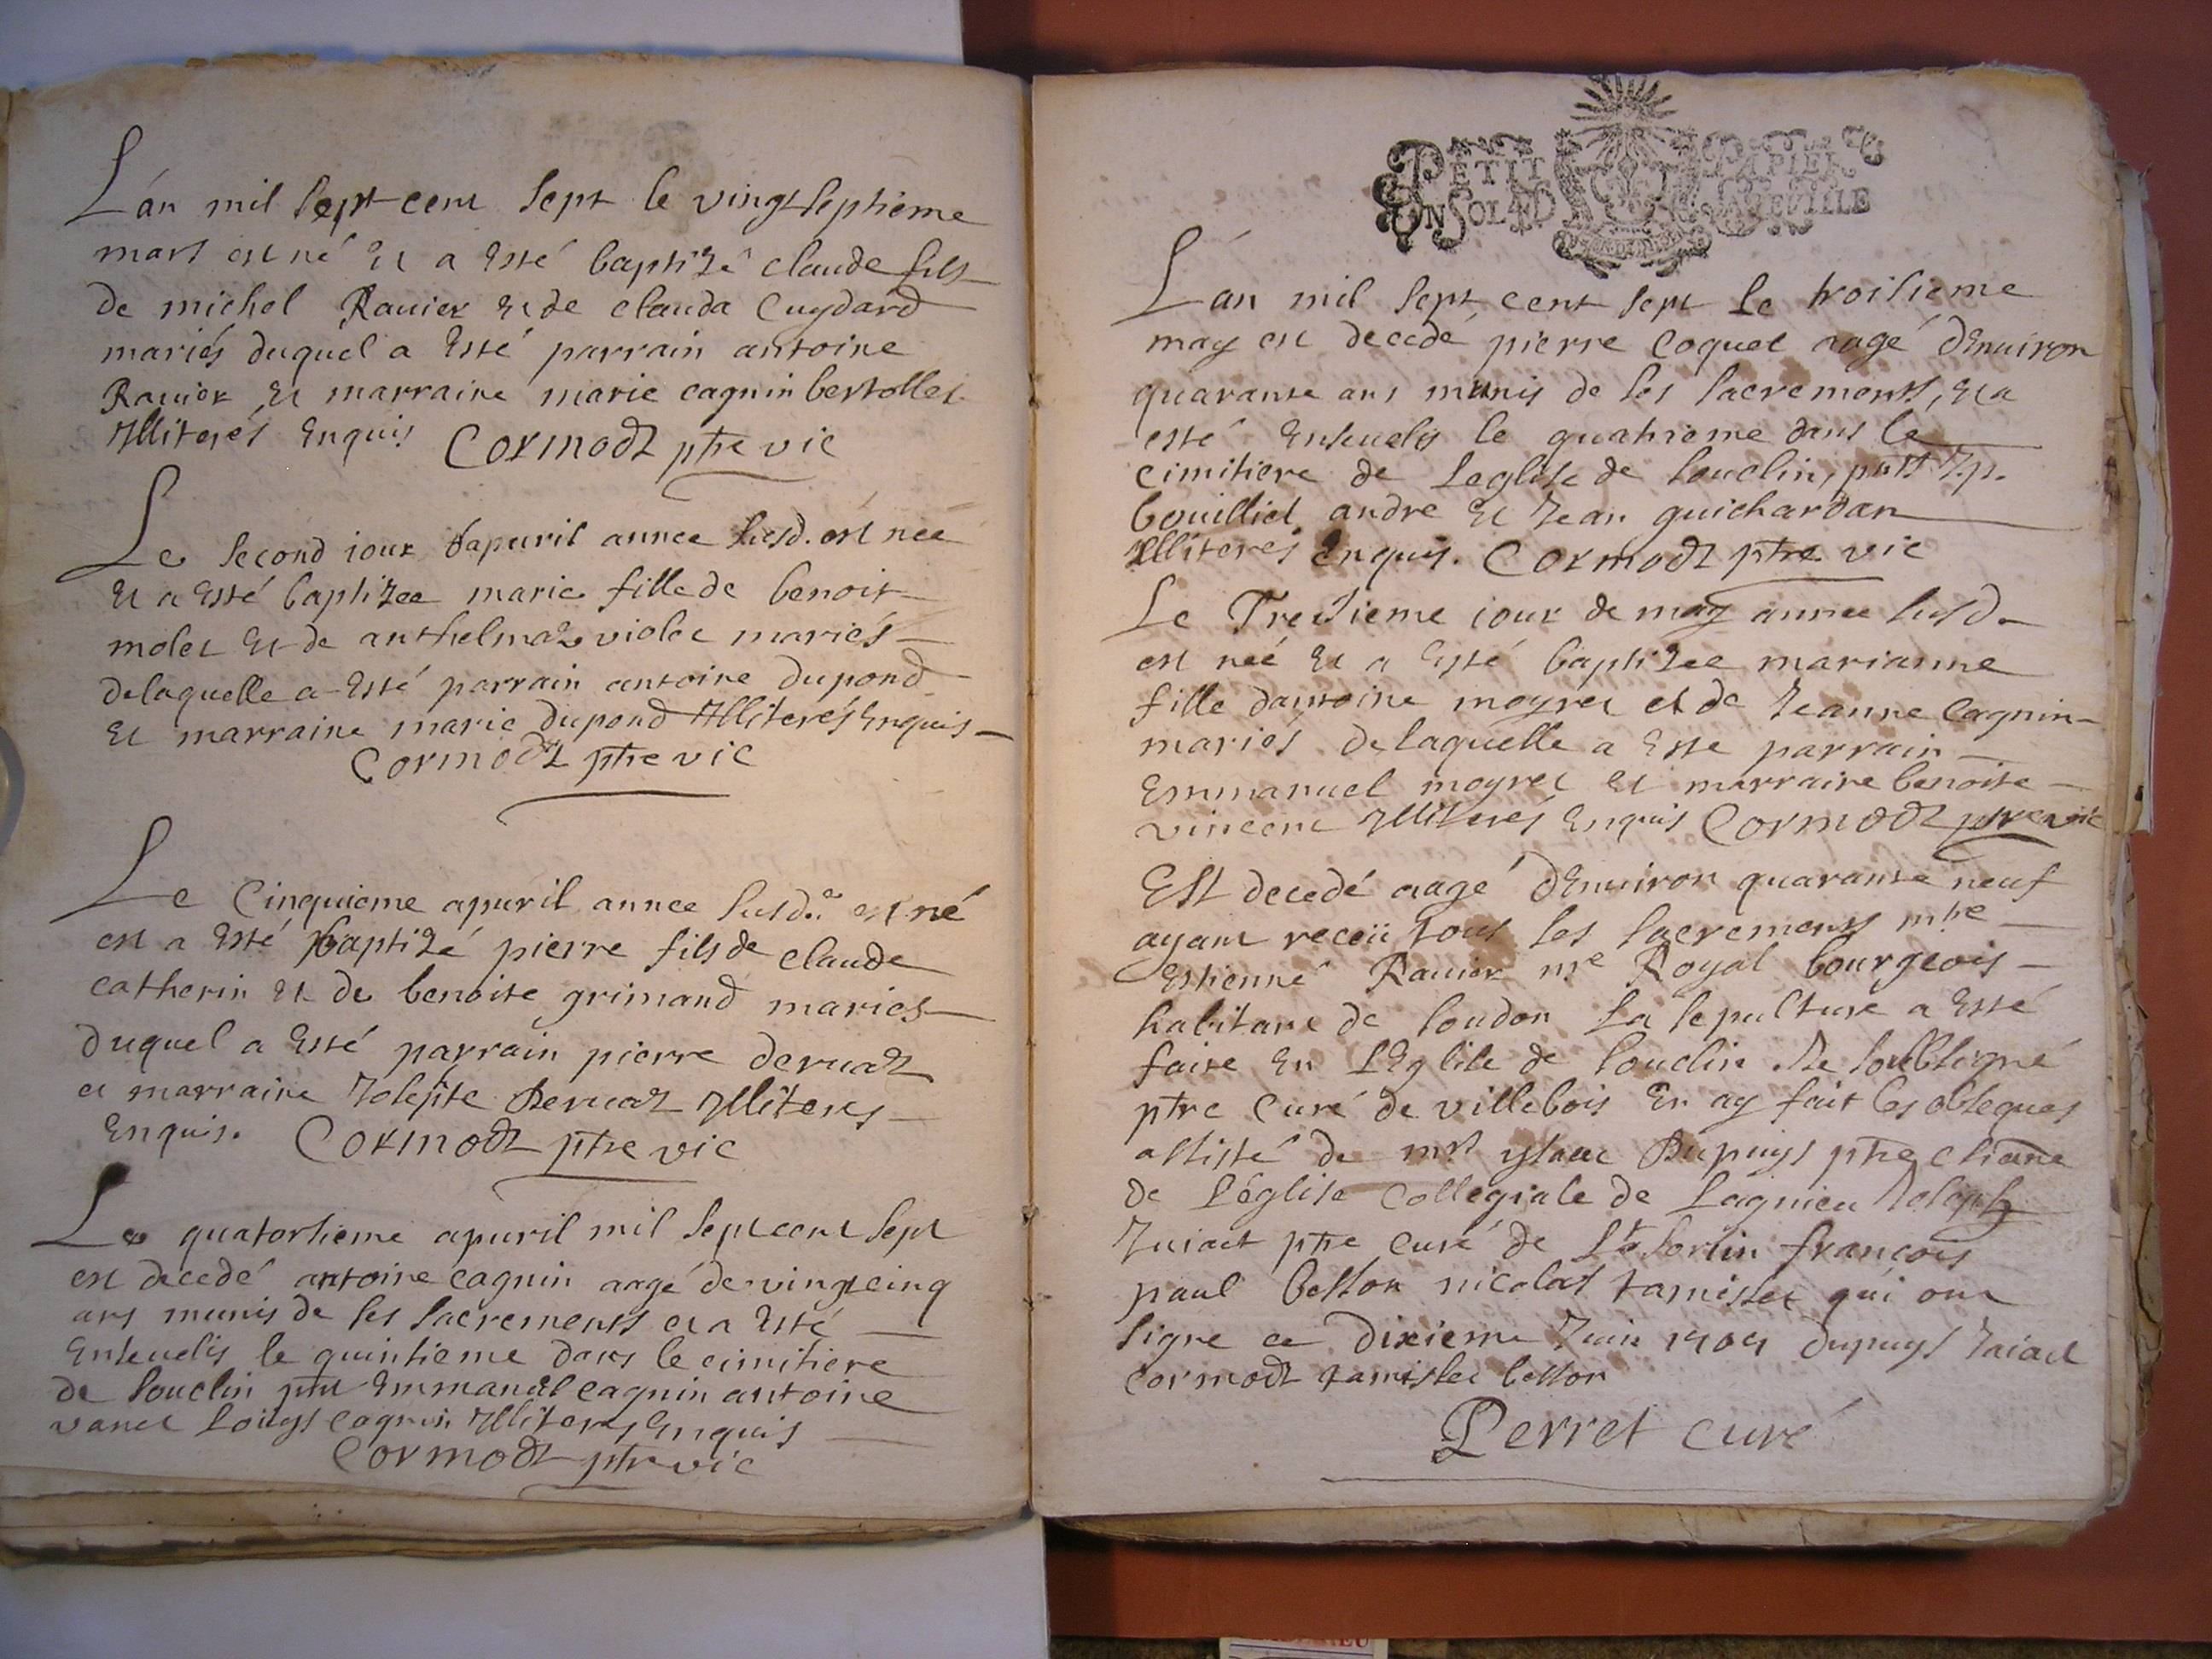 L'an mil sept cent sept le vingt septieme
mars est né et a esté baptizé claude fils
de michel Ravier et de clauda Cuydard
mariés duquel a esté parrain antoine
Ravier et marraine marie cagnin bertollet
Illiterés enquis Cormodz ptre vic
Le second iour d'apuril annee susd. est née
et a esté baptizee marie fille de benoit
molet et de anthelmaz violet mariés
de laquelle a esté parrain antoine dupond
et marraine marie dupond Illiterés enquis
Cormodz ptre vic
Le Cinquieme apuril annee susd.e est né
est a esté baptizé pierre fils de claude
catherin et de benoite grimand mariés
duquel a esté parrain pierre deruaz
et marraine Josepte Deruaz Illiterés
enquis. Cormodz ptre vic
Le quatorsieme apuril mil sept cent sept
est decedé antoine cagnin aagé de vingt cinq
ans munis de ses sacrements et a esté
enseuelis le quinsieme dans le cimitiere
de souclin pnt Emmanuel cagnin antoine
vanet Louys cagnin Illiterés enquis
Cormodz ptre vic
PETIT PAPIER
UN SOL 4 D LA FEUILLE
L'an mil sept cent sept le troisieme
may est decedé pierre Coquet aagé d'enuiron
quarante ans munis de ses sacrements, et a
esté enseuelis le quatrieme dans le
cimitiere de Leglise de souclin, pnts J. p.
bouilliet andre et Jean guichardan
Illiterés enquis. Cormodz ptre vic
Le Tresieme iour de may annee susd.
est neé et a esté baptizee marianne
fille dantoine moyret et de Jeanne Cagnin
mariés de laquelle a este parrain
Emmanuel moyret et marraine benoite
vincent Illiterés enquis Cormodz ptre vic
Est decedé aagé d'enuiron quarante neuf
ayant receü tous les sacrements mtre
Estienne Ravier me Royal bourgeois
habitant de soudon La sepulture a esté
faite en L'Eglise de souclin Je soubsigné
ptre Curé de villebois en ay fait les obseques
assisté de mr ysaac Dupuys ptre channe
de L'église Collegiale de Lagnieu Joseph
Juiact ptre curé de St sorlin francois
paul besson nicolas tamisset qui ont
signe ce dixieme Juin 1707 dupuys Juiact
Cormodz tamisset besson
Perret curé